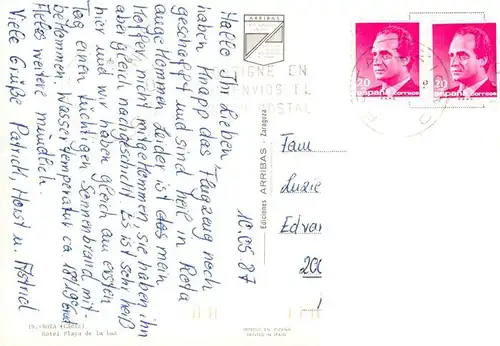 Hallo Ihr Lieben,
haben knapp das Flugzeug noch
geschafft und sind heil in Rota
angekommen. Leider ist das mein
Koffer nicht mitgekommen, sie haben ihn
aber gleich nachgeschickt. Es ist sehr heiß
hier und wir haben gleich am ersten
Tag einen tüchtigen Sonnenbrand mit-
bekommen. Wassertemperatur ca. 18°/19°
Alles weitere mündlich.
Viele Grüße Patrick, Horst u. Astrid
10.05.87
ROTA (CADIZ)
Hotel Playa de la Luz
ARRIBAS
Ediciones ARRIBAS - Zaragoza
IMPRESO EN ESPAÑA
PRINTED IN SPAIN
SIGNE EN
ENVIOS EL
POSTAL
20
España correos
20
España correos
Fam
Luzie
Edvar
200